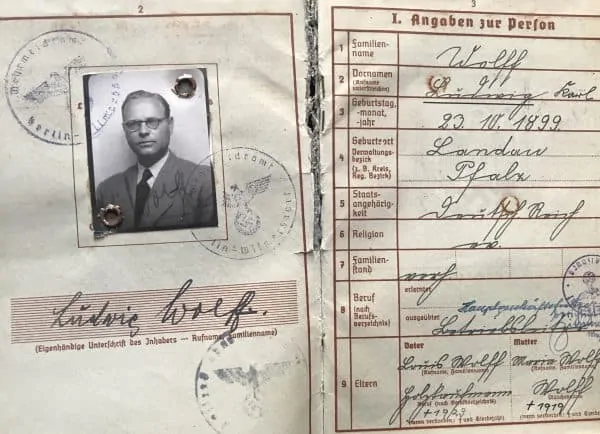 2
Ludwig Wolff.
(Eigenhändige Unterschrift des Inhabers — Rufname, Familienname)
3
I. Angaben zur Person
1 Familien-
name
Wolff
2 Vornamen
(Rufname
unterstreichen)
Ludwig Karl
3 Geburtstag,
-monat,
-jahr
23. 10. 1899.
4 Geburtsort
Verwaltungs-
bezirk
(z. B. Kreis,
Reg. Bezirk)
Landau
Pfalz
5 Staats-
angehörig-
keit
Deutsch Reich
6 Religion
ev.
7 Familien-
stand
verh
8 Beruf
(nach
Berufs-
verzeichnis)
erlernter
ausgeübter
9 Eltern
Vater
Louis Wolff
(Rufname, Familienname)
Holzkaufmann
Beruf (nach Berufsverzeichnis)
Mutter
Maria Wolff
(Rufname, Familienname)
Wolff
(Mädchenname)
† 1919